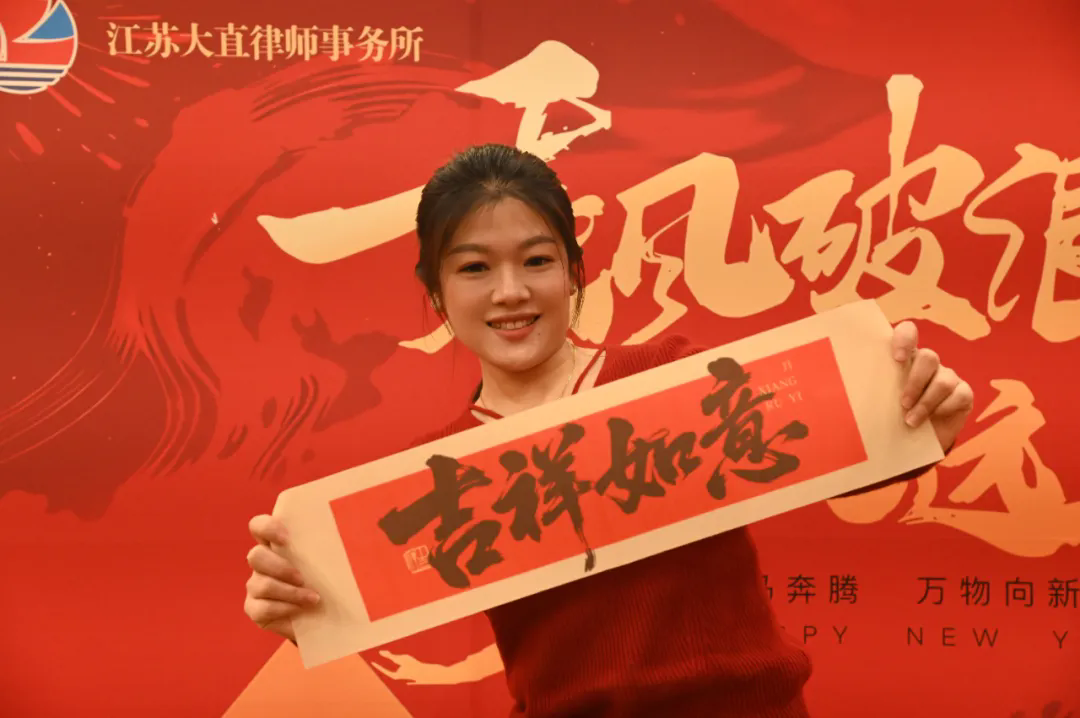 江苏大直律师事务所
乘风破浪
远
JI
XIANG
RU YI
吉祥如意
马奔腾 万物向新
PPY NEW Y